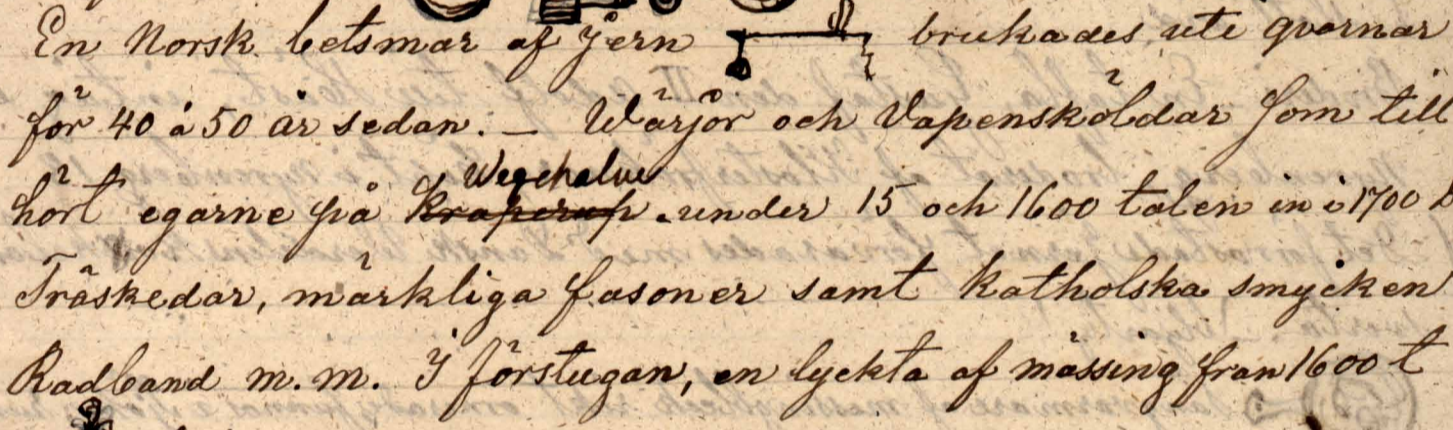 En Norsk betsmar af Jern brukades ute qvarnar
för 40 á 50 år sedan. — Wärjor och Vapensköldar som till
hört egarne på Wegeholm under 15 och 1600 talen in i 1700
Träskedar, märkliga fasoner samt katholska smycken
Radband m.m. I förstugan, en lyckta af mässing från 1600 t